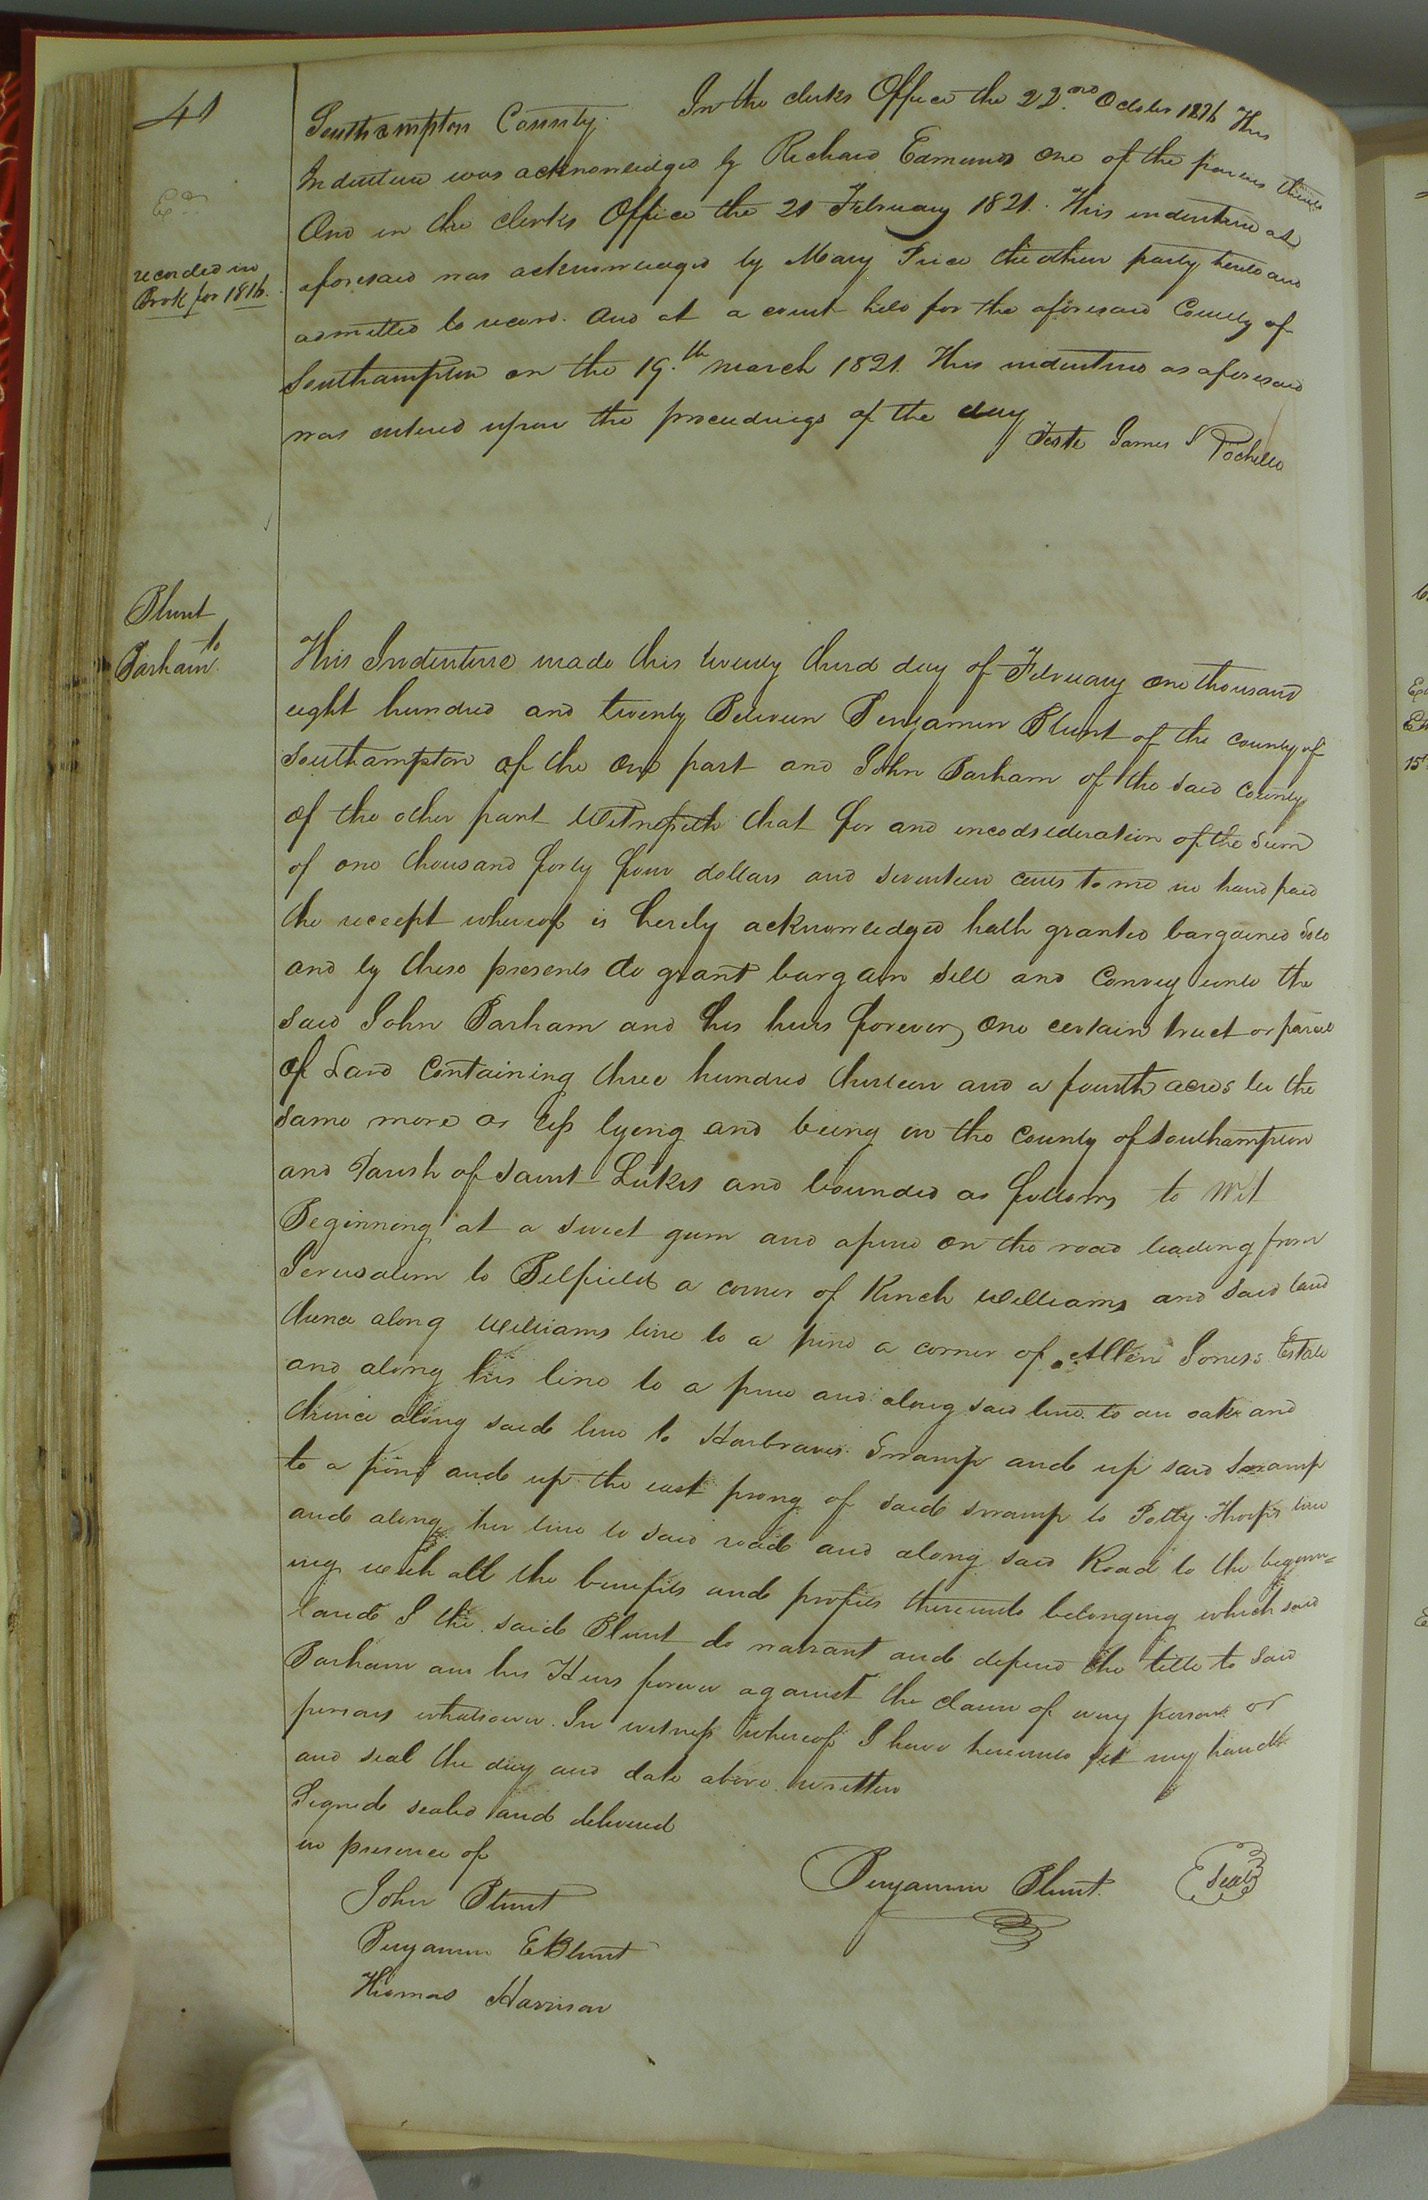 41
Southampton County. In the clerks Office the 22nd October 1816 This
Indenture was acknowledged by Richard Edmunds one of the parties thereto
And in the clerks Office the 21 February 1821. This indenture as
recorded in
Book for 1816.
aforesaid was acknowledged by Mary Price the other party hereto and
admitted to record. And at a court held for the aforesaid County of
Southampton on the 19th march 1821. This indenture as aforesaid
was entered upon the proceedings of the day
Teste James S Rochelle
Blunt
to
Parham.
This Indenture made this twenty third day of February one thousand
eight hundred and twenty Between Benjamin Blunt of the county of
Southampton of the one part and John Parham of the said County
of the other part Witnesseth that for and incodsideration of the Sum
of one thousand forty four dollars and seventeen cents to me in hand paid
the receept whereof is hereby acknowledged hath granted bargained Sold
and by these presents do grant bargain Sell and Convey unto the
said John Parham and his heirs forever, One certain tract or parcel
of Land Containing three hundred thirteen and a fourth acres be the
same more or less lyeing and being in the County of Southampton
and Parish of Saint Lukes and bounded as follows to Wit
Beginning at a sweet gum and apine on the road leading from
Jerusalem to Belfield a corner of Kinch Williams and said land
thence along Williams line to a pine a corner of Allen Jones's Estate
and along his line to a pine and along said line to an oak and
thence along said line to Swamp and up said Swamp
to a pine and up the east prong of said swamp to Polly Thorps line
and along her line to said road and along said Road to the beginn=
ing with all the benefits and profits thereunto belonging which said
land I the said Blunt do warrant and defend the title to said
Parham and his Heirs forever against the claim of any person or
persons whatsoever. In witness whereof I have hereunto set my hand
and seal the day and date above written
Signed sealed and delivered
in presence of
Benjamin Blunt. Seal
John Blunt
Benjamin E Blunt
Thomas Harrison